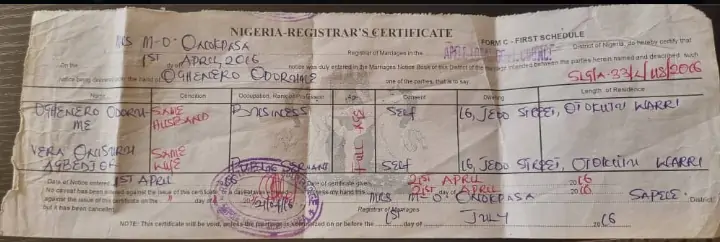 NIGERIA-REGISTRAR'S CERTIFICATE
FORM C - FIRST SCHEDULE
MRS M-O- ONOKPASA
Registrar of Marriages in the
District of Nigeria, do hereby certify that
On the 1ST day of APRIL, 2016 notice was duly entered in the Marriage Notice Book of this District of the marriage intended between the parties herein named and described, such
Notice being under the hand of OGHENERO ODORUME one of the parties, that is to say
Name Condition Occupation, Rank or Profession Age Consent Dwelling Length of Residence
OGHENERO ODORU-ME SANE HUSBAND BUSINESS FULL AGE SELF 16, JEDO STREET, OTOKUTU WARRI
VERA SANE WIFE PUBLIC SERVANT SELF 16, JEDO STREET, OTOKUTU WARRI
Date of Notice entered 1ST APRIL Date of certificate given 21ST APRIL 2016
No caveat has been entered against the issue of this certificate, or a caveat was entered my hand this 21ST day of APRIL 2016
against the issue of this certificate on the day of MRS M-O- ONOKPASA SAPELE District
but it has been cancelled. Registrar of Marriages
NOTE: This certificate will be void, unless the marriage is solemnized on or before the 1ST day of JULY 2016